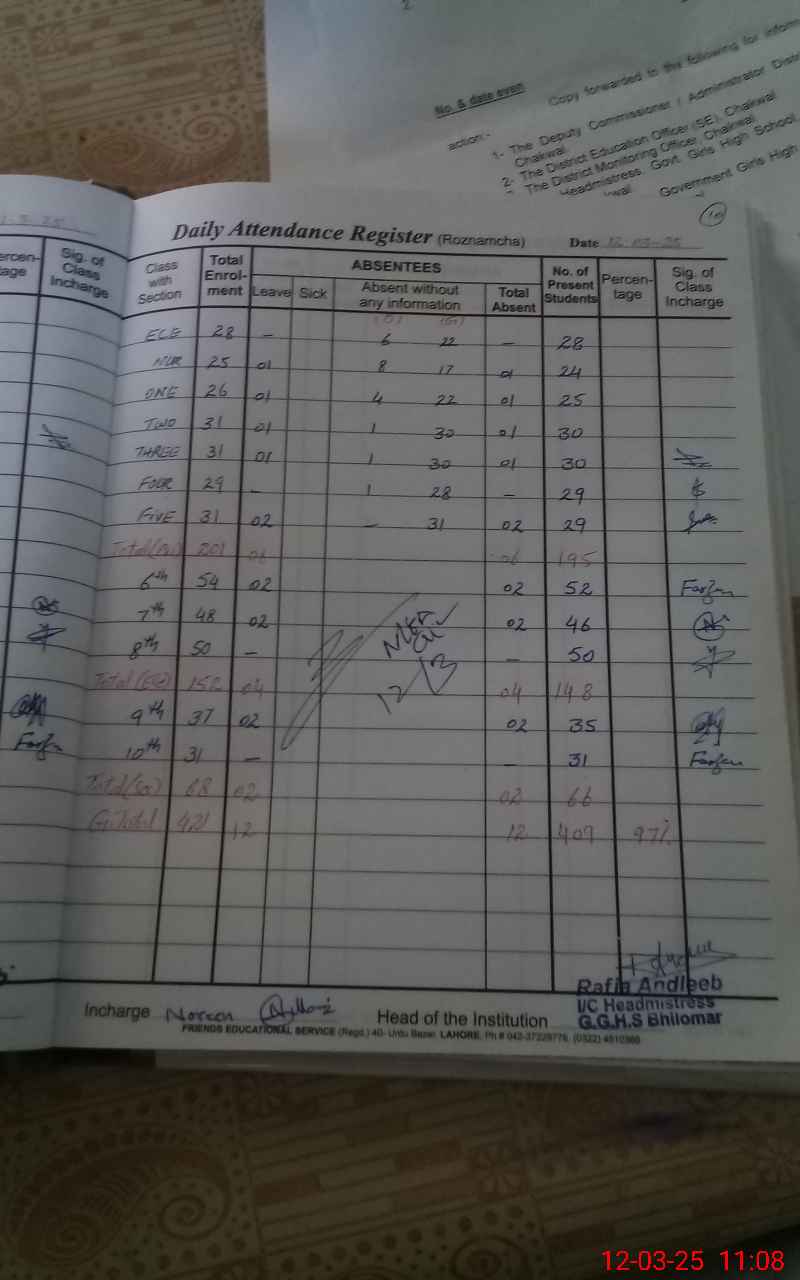 2.
No. & date even
Copy forwarded to the following for inform
action:-
1- The Deputy Commissioner / Administrator Distri
Chakwal.
2- The District Education Officer (SE), Chakwal
The District Monitoring Officer, Chakwal.
Headmistress Govt. Girls High School,
Government Girls High
Daily Attendance Register (Roznamcha) Date 12-03-25
ercen-
tage
Sig. of
Class
Incharge
Class
with
Section
Total
Enrol-
ment
ABSENTEES
Leave Sick
Absent without
any information
Total
Absent
No. of
Present
Students
Percen-
tage
Sig. of
Class
Incharge
ECE 28 - 6 22 - 28
NUR 25 01 8 17 01 24
ONE 26 01 4 22 01 25
TWO 31 01 1 30 01 30
THREE 31 01 1 30 01 30
FOUR 29 - 1 28 - 29
FIVE 31 02 - 31 02 29
Total 201 06 06 195
6th 54 02 02 52 Farzan
7th 48 02 02 46
8th 50 - - 50
Total 152 04 04 148
9th 37 02 02 35
10th 31 - - 31 Farzan
Total 68 02 02 66
G.Total 421 12 12 409 97%
12/3
Incharge Noreen
Head of the Institution
Rafia Andleeb
I/C Headmistress
G.G.H.S Bhilomar
FRIENDS EDUCATIONAL SERVICE (Regd.) 40- Urdu Bazar, LAHORE.
12-03-25 11:08